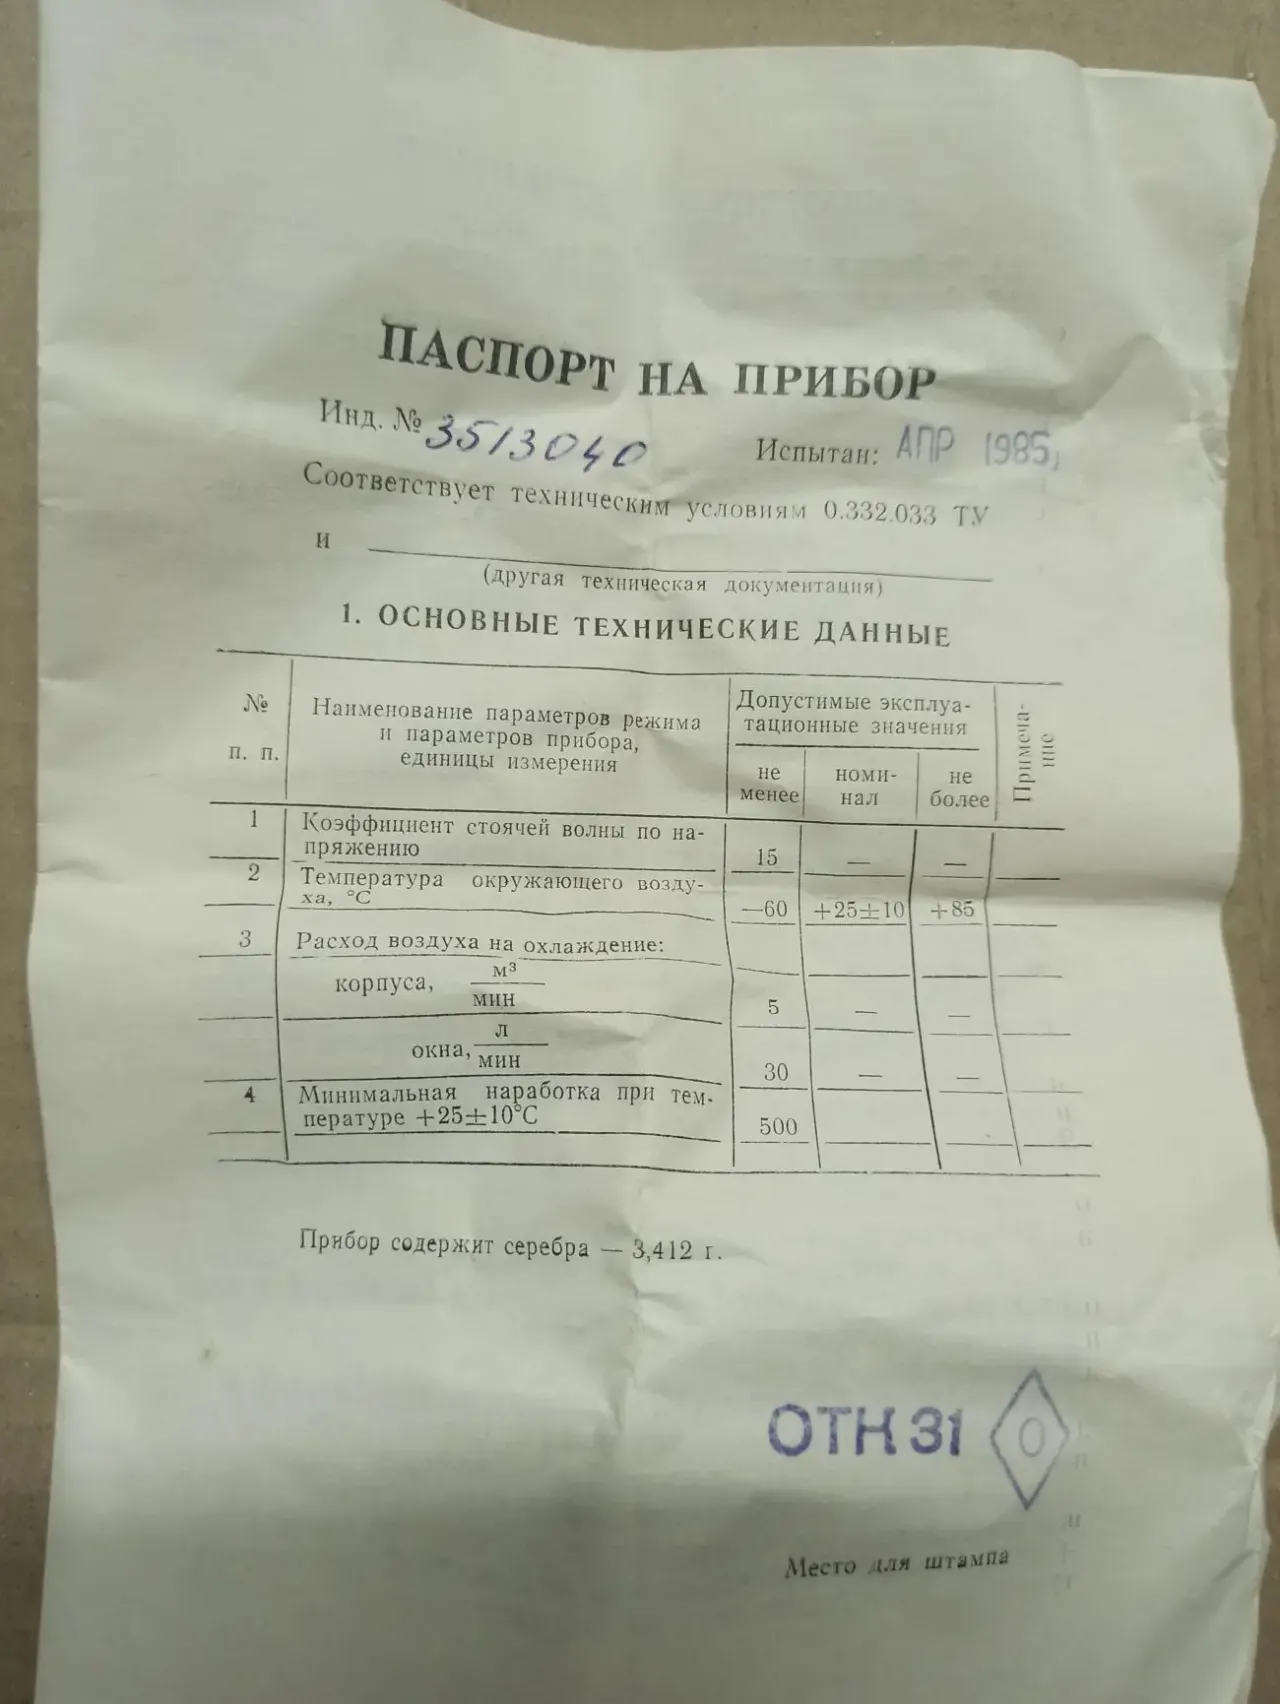 ПАСПОРТ НА ПРИБОР
Инд. № 3513040 Испытан: АПР 1985
Соответствует техническим условиям 0.332.033 ТУ
и
(другая техническая документация)
1. ОСНОВНЫЕ ТЕХНИЧЕСКИЕ ДАННЫЕ
№ п. п.
Наименование параметров режима
и параметров прибора,
единицы измерения
Допустимые эксплуа-
тационные значения
не менее
номи-нал
не более
Примеча-ние
1 Коэффициент стоячей волны по на-
пряжению 15 — —
2 Температура окружающего возду-
ха, °С —60 +25±10 +85
3 Расход воздуха на охлаждение:
корпуса, м³/мин 5 — —
окна, л/мин 30 — —
4 Минимальная наработка при тем-
пературе +25±10°С 500
Прибор содержит серебра — 3,412 г.
ОТК 31 О
Место для штампа